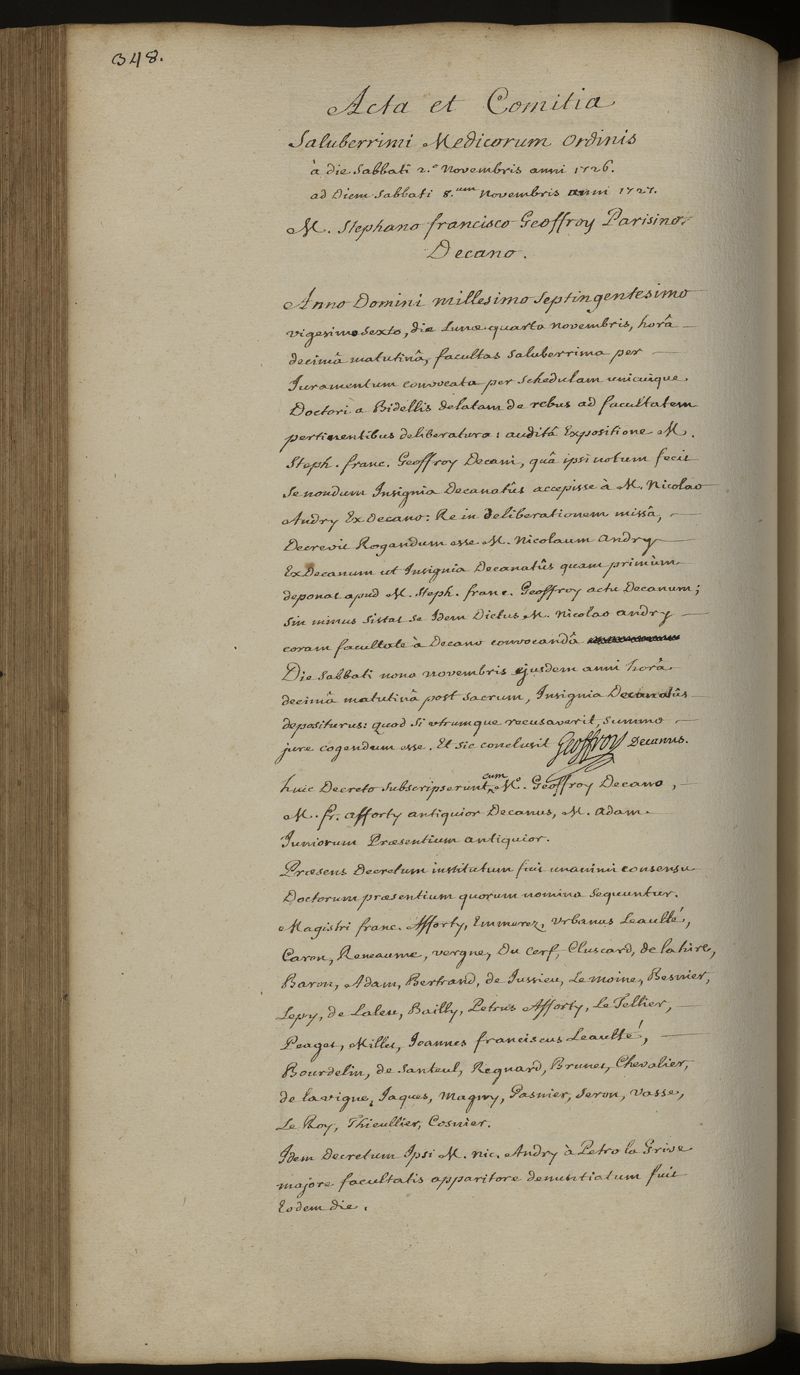 348.
Acta et Comitia
Saluberrimi Medicorum Ordinis
à die Sabbati 2.ª Novembris anni 1726.
ad Diem Sabbati 8.um Novembris anni 1727.
M. Stephano francisco Geoffroy Parisino.
Decano.
Anno Domini millesimo Septingentesimo
vigesimo Sexto, die Lunæ quarta novembris, horâ
decimâ matutinâ, facultas Saluberrima per
Iuramentum convocata per Schedulam unicuique
Doctori a Bidellis delatam de rebus ad facultatem
pertinentibus deliberatura: auditâ Expositione M.
Steph. franc. Geoffroy Decani, quâ ipsi notum fecit
Se nondum Insignia Decanatûs accepisse à M. Nicolao
Andry ExDecano: Re in deliberationem missâ,
Decrevit Rogandum esse M. Nicolaum Andry
ExDecanum ut Insignia Decanatûs quam primùm
deponat apud M. Steph. franc. Geoffroy actu Decanum;
Sin minus sistat se Idem Dictus M. Nicolao andry
coram facultate à Decano convocandâ
Die Sabbati nona novembris ejusdem anni horâ
decimâ matutinâ post Sacrum, Insignia Decanatûs
depositurus: quod Si utrumque recusaverit, Summo
jure cogendum esse. Et sic conclusit Geoffroy Decanus.
huic Decreto Subscripserunt cum M.º Geoffroy Decano,
M. fr. afforty antiquior Decanus, M. adam
Iuniorum Præsentium antiquior.
Præsens Decretum institutum fuit unanimi consensu
Doctorum præsentium quorum nomina Sequuntur.
Magistri franc. Afforty, Emmerez, Urbanus Leaulté,
Caron, Reneaume, vergne, Du Cerf, Cluscard, de la hire,
Baron, Adam, Bertrand, de Jussieu, Le moine, Besnier,
Lepy, de Laleu, Bailly, Petrus Afforty, Le Tellier,
Peaget, Millet, Ioannes franciscus Leaulté,
Bourdelin, de Santeul, Regnard, Brunet, Chevalier,
de la vigne, Iaques, Magny, Pasnier, Seron, Vasse,
Le Roy, Thieullier, Cosnier.
Idem Decretum Ipsi M. nic. Andry à Petro la Grive
majore facultatis apparitore denuntiatum fuit
Eodem die.